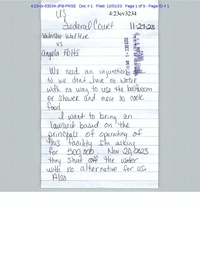 4:23-cv-03234-JFB-PRSE Doc # 1 Filed: 12/01/23 Page 1 of 5 - Page ID # 1
US
4:23cv3234
Federal Court 11-27-23
Walker
vs
Angela Potts
We need an injunction
to we dont have no water
with no way to use the bathroom
or shower and more so cook
food
I want to bring an
lawsuit based on the
principals of operating of
this facility I'm asking
for 500,000. Nov 20, 2023
they shut off the water
with no alternative for us.
Also